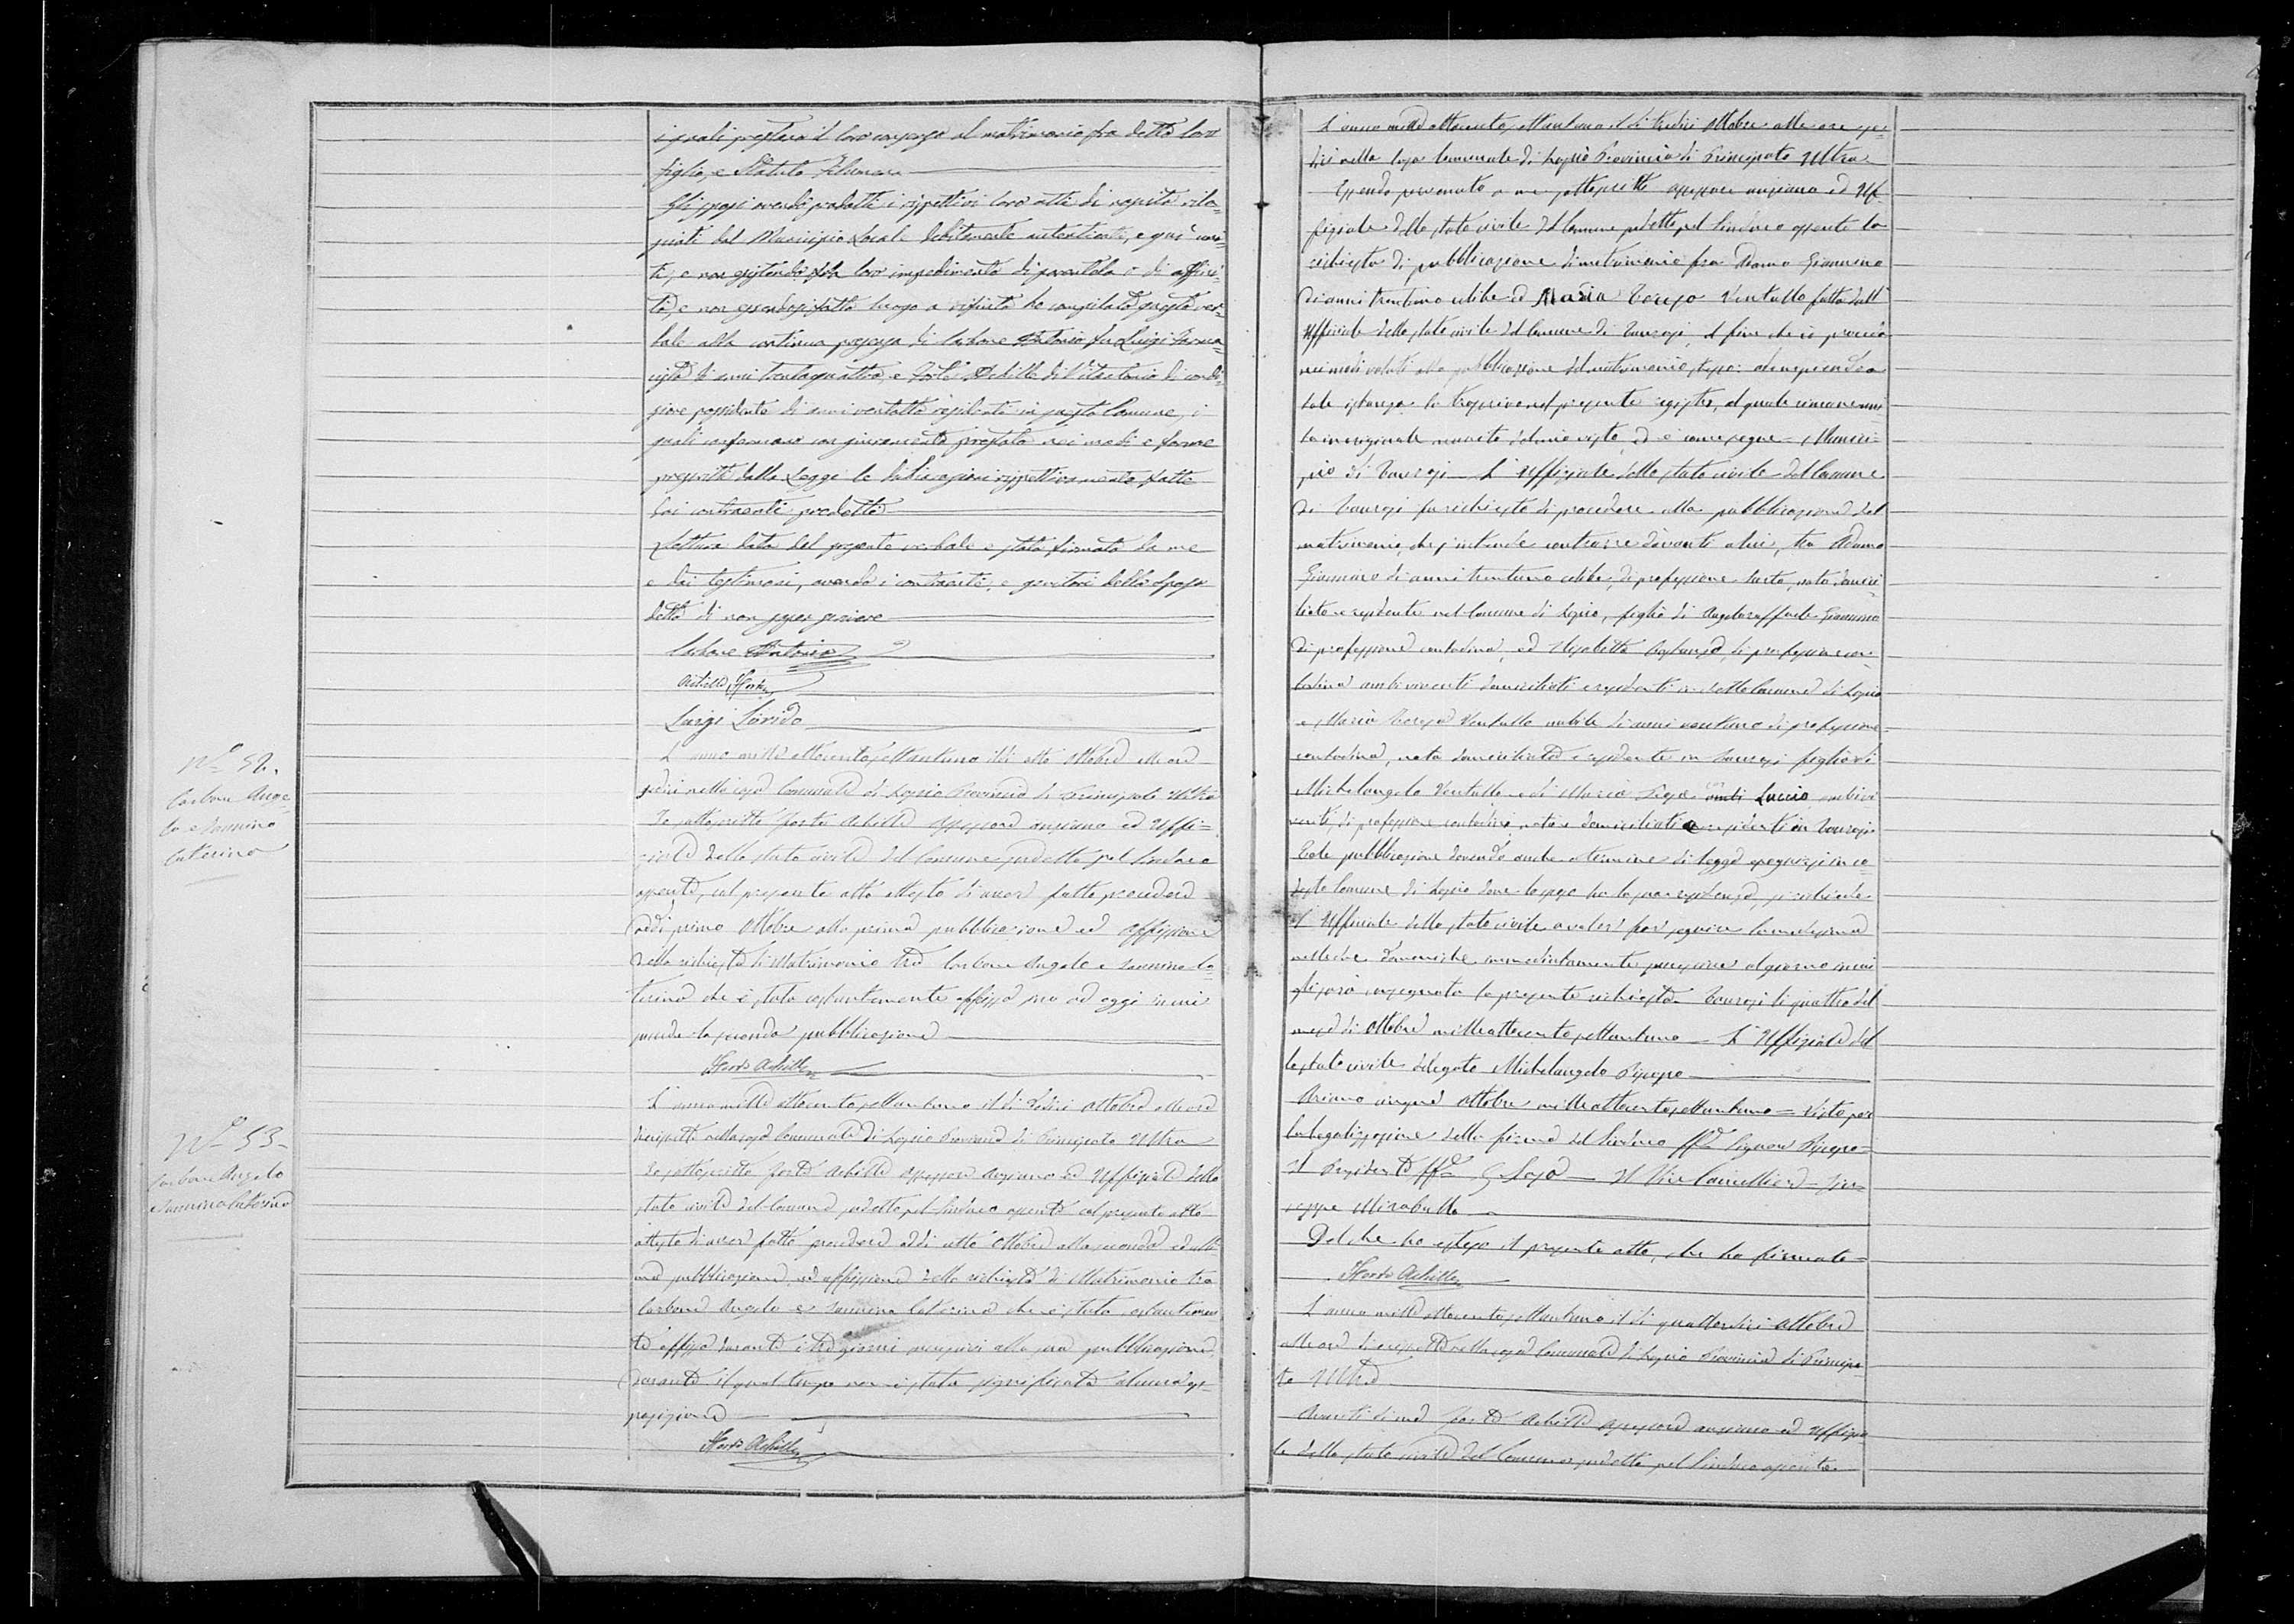 i quali prestano il loro consenso al matrimonio fra detta loro
figlia, e Statuto
Gli sposi avendo prodotti i rispettivi loro atti di nascita rila-
sciati dal Municipio Locale debitamente autenticati, e qui uni-
ti, e non esistendo fra loro impedimento di parentela o di affini-
tà, e non essendosi fatto luogo a rifiuto ho compilato questo ver-
bale alla continua presenza di Carbone Antonio fu Luigi
di anni trentaquattro, e Forte Achille di Vitantonio di condi-
zione possidente di anni ventotto residenti in questo Comune, i
quali confermano con giuramento prestato nei modi e forme
prescritte dalla Legge le dichiarazioni rispettivamente fatte
dai contraenti predetti
Lettura data del presente verbale è stato firmato da me
e dai testimoni, avendo i contraenti, e genitori della sposa
detto di non saper scrivere
Carbone Antonio
Achille Forte
Luigi Lovido
L'anno mille ottocento settantuno il dì otto Ottobre alle ore
sedici nella casa Comunale di Lapio Provincia di Principato Ultra
Io sottoscritto Forte Achille assessore anziano ed Uffi-
ciale dello stato civile del Comune suddetto pel Sindaco
assente, col presente atto attesto di aver fatto procedere
addì primo Ottobre alla prima pubblicazione ed affissione
della richiesta di Matrimonio tra Carbone Angelo e Iannino Ca-
terina che è stata costantemente affissa sino ad oggi in cui
succede la seconda pubblicazione
Forte Achille
L'anno mille ottocento settantuno il dì dodici Ottobre alle ore
diciasette nella casa Comunale di Lapio Provincia di Principato Ultra
Io sottoscritto Forte Achille assessore anziano ed Uffiziale dello
stato civile del Comune suddetto pel Sindaco assente col presente atto
attesto di aver fatto procedere addì otto Ottobre alla seconda ed ulti-
ma pubblicazione, ed affissione della richiesta di Matrimonio tra
Carbone Angelo e Iannino Caterina che è stata costantemen
te affissa durante i tre giorni successivi alla sua pubblicazione,
durante il qual tempo non è stata significata alcuna op-
posizione
Forte Achille
No 52.
Carbone Ange
lo e Iannino
Caterina
No 53-
Carbone Angelo
e Iannino Caterina
L'anno mille ottocento settantuno il dì tredici Ottobre alle ore se-
dici nella casa Comunale di Lapio Provincia di Principato Ultra
Essendo pervenuta a me sottoscritto assessore anziano ed Uf-
fiziale dello stato civile del Comune suddetto pel Sindaco assente la
richiesta di pubblicazione di matrimonio fra Adamo Giannino
di anni trentuno celibe ed Maria Teresa Ventullo fatta dall'
Uffiziale dello stato civile del Comune di Taurasi, al fine che io proceda
nei modi voluti alla pubblicazione del matrimonio stesso:
tale istanza la trascrivo nel presente registro, al quale rimane uni
ta in originale munita del mio visto, ed è come segue = Munici-
pio di Taurasi = L'Uffiziale dello stato civile del Comune
di Taurasi fa richiesta di procedere alla pubblicazione del
matrimonio, che s'intende contrarre davanti a lui, tra Adamo
Giannino di anni trentuno celibe, di professione sarto, nato domici
liato e residente nel Comune di Lapio, figlio di Angeloraffaele Giannino
di professione contadino, ed Elisabetta di professione con-
tadina ambi viventi domiciliati e residenti in detto Comune di Lapio
e Maria Teresa Ventullo nubile di anni ventuno di professione
contadina, nata domiciliata e residente in Taurasi figlia di
Michelangelo Ventullo e di Maria Luccio ambi vi
venti, di professione contadini, nati e domiciliati e residenti in Taurasi.
Tale pubblicazione dovendo anche a termine di legge eseguirsi in co
desto Comune di Lapio dove lo sposo ha la sua residenza, si richiede
l'Uffiziale dello stato civile a voler far seguire la medesima
nelle due domeniche immediatamente successive al giorno in cui
gli sarà consegnata la presente richiesta. Taurasi li quattro del
mese di Ottobre mille ottocento settantuno = L'Uffiziale del
lo stato civile delegato Michelangelo
Ariano cinque Ottobre mille ottocento settantuno = Visto per
la legalizzazione della firma del Sindaco ff. Signor
Il Presidente ff. Il Vice Cancelliere = Giu-
seppe Mirabella
Del che ho esteso il presente atto, che ho firmato =
Forte Achille
L'anno mille ottocento settantuno il dì quattordici Ottobre
alle ore diciasette nella casa Comunale di Lapio Provincia di Principa
to Ultra
Avanti di me Forte Achille assessore anziano ed Uffizia
le dello stato civile del Comune suddetto pel Sindaco assente